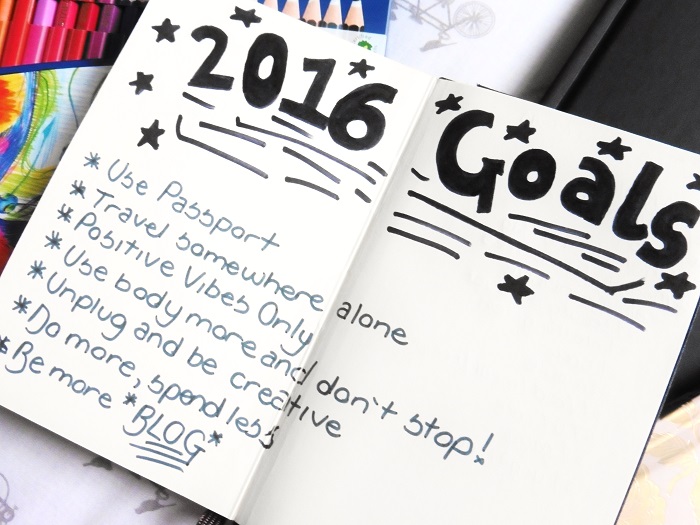 2016 Goals
* Use Passport
* Travel somewhere alone
* Positive Vibes Only
* Use body more and don't stop!
* Unplug and be creative
* Do more, spend less
* Be more *BLOG*